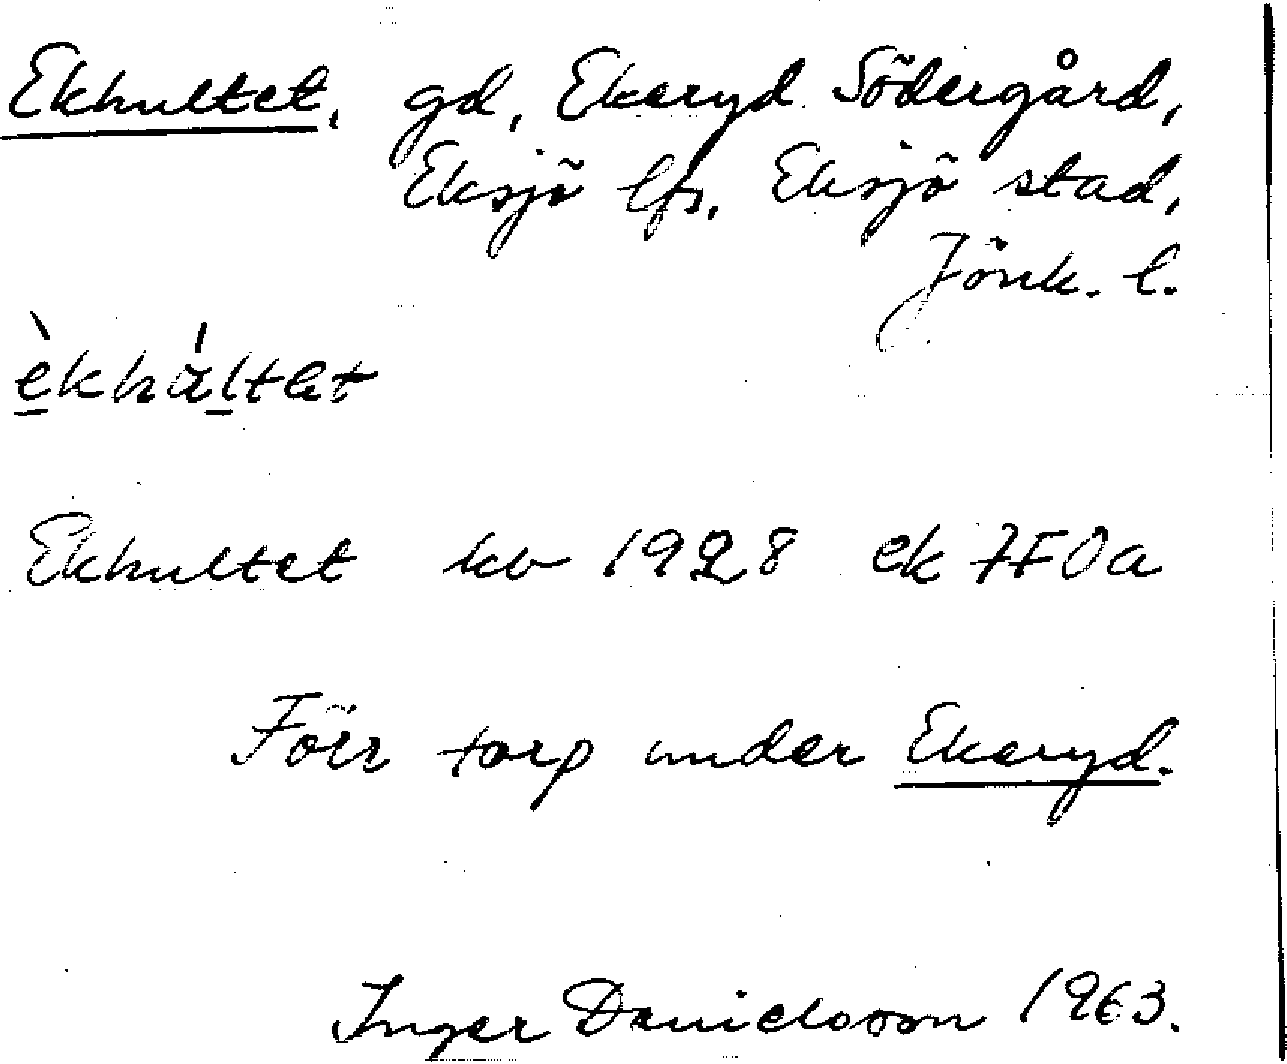 Ekhultet, gd, Ekeryd Södergård,
Eksjö lfs, Eksjö stad,
Jönk. l.
èkhúltet
Ekhultet kb 1928 ek 7F0a
Förr torp under Ekeryd.
Inger Danielsson 1963.